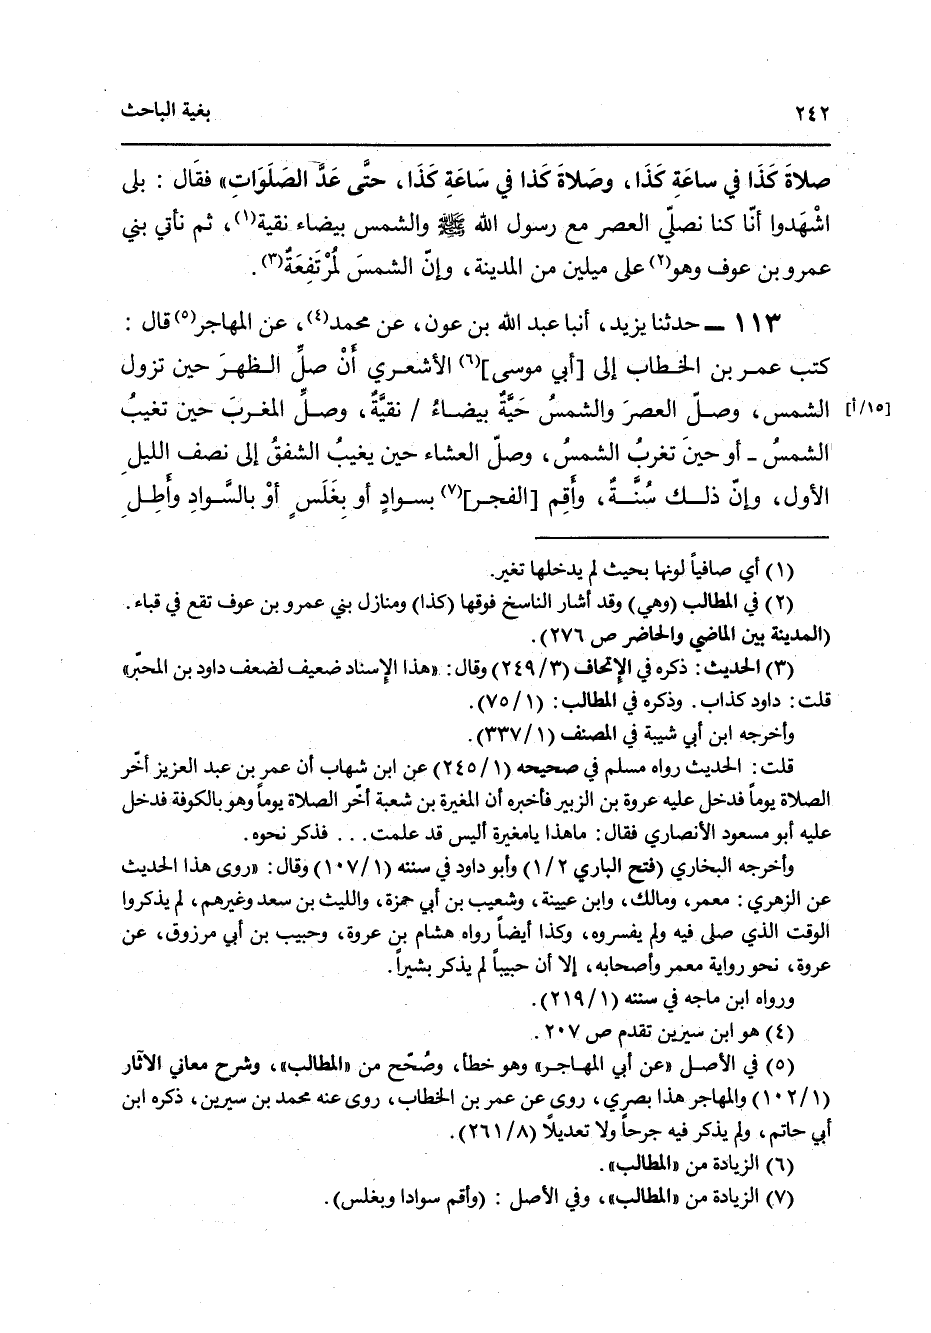 ٢٤٢ بغية الباحث
صلاةَ كَذَا في ساعَةِ كَذَا، وصَلاةَ كَذا في سَاعَةِ كَذَا، حتَّى عَدَّ الصَلَوَاتِ» فقَال : بلى
اشْهَدوا أنّا كنا نصلّي العصر مع رسول الله ﷺ والشمس بيضاء نقية(١)، ثم نأتي بني
عمرو بن عوف وهو(٢) على ميلين من المدينة، وإنّ الشمسَ لمُرْتَفِعَةٌ(٣).
١١٣ ــ حدثنا يزيد، أنبا عبد الله بن عون، عن محمد(٤)، عن المهاجر(٥) قال :
كتب عمر بن الخطاب إلى [أبي موسى](٦) الأشعري أَنْ صلِّ الظهرَ حين تزول
[١٥/أ] الشمس، وصلّ العصرَ والشمسُ حَيَّة بيضاءُ / نقيَّةٌ، وصلِّ المغربَ حين تغيبُ
الشمسُ ـ أو حينَ تغربُ الشمسُ، وصلّ العشاء حين يغيبُ الشفقُ إلى نصف الليل
الأول، وإنّ ذلك سُنَّةٌ، وأَقِم [الفجر](٧) بسوادٍ أو بِغَلَسٍ أوْ بالسَّوادِ وأَطِل
(١) أي صافياً لونها بحيث لم يدخلها تغير.
(٢) في المطالب (وهي) وقد أشار الناسخ فوقها (كذا) ومنازل بني عمرو بن عوف تقع في قباء.
(المدينة بين الماضي والحاضر ص ٢٧٦).
(٣) الحديث : ذكره في الإتحاف (٢٤٩/٣) وقال : «هذا الإسناد ضعيف لضعف داود بن المحبّر»
قلت : داود كذاب. وذكره في المطالب : (٧٥/١).
وأخرجه ابن أبي شيبة في المصنف (٣٣٧/١).
قلت : الحديث رواه مسلم في صحيحه (٢٤٥/١) عن ابن شهاب أن عمر بن عبد العزيز أخّر
الصلاة يوماً فدخل عليه عروة بن الزبير فأخبره أن المغيرة بن شعبة أخّر الصلاة يوماً وهو بالكوفة فدخل
عليه أبو مسعود الأنصاري فقال : ماهذا يامغيرة أليس قد علمت... فذكر نحوه.
وأخرجه البخاري (فتح الباري ١/٢) وأبو داود في سننه (١٠٧/١) وقال : «روى هذا الحديث
عن الزهري : معمر، ومالك، وابن عيينة، وشعيب بن أبي حمزة، والليث بن سعد وغيرهم، لم يذكروا
الوقت الذي صلى فيه ولم يفسروه، وكذا أيضاً رواه هشام بن عروة، وحبيب بن أبي مرزوق، عن
عروة، نحو رواية معمر وأصحابه، إلا أن حبيباً لم يذكر بشيراً.
ورواه ابن ماجه في سننه (٢١٩/١).
(٤) هو ابن سيرين تقدم ص ٢٠٧.
(٥) في الأصل «عن أبي المهاجر» وهو خطأ، وصُحّح من «المطالب»، وشرح معاني الآثار
(١٠٢/١) والمهاجر هذا بصري، روى عن عمر بن الخطاب، روى عنه محمد بن سيرين، ذكره ابن
أبي حاتم، ولم يذكر فيه جرحاً ولا تعديلاً (٢٦١/٨).
(٦) الزيادة من «المطالب».
(٧) الزيادة من «المطالب»، وفي الأصل : (وأقم سوادا وبغلس).